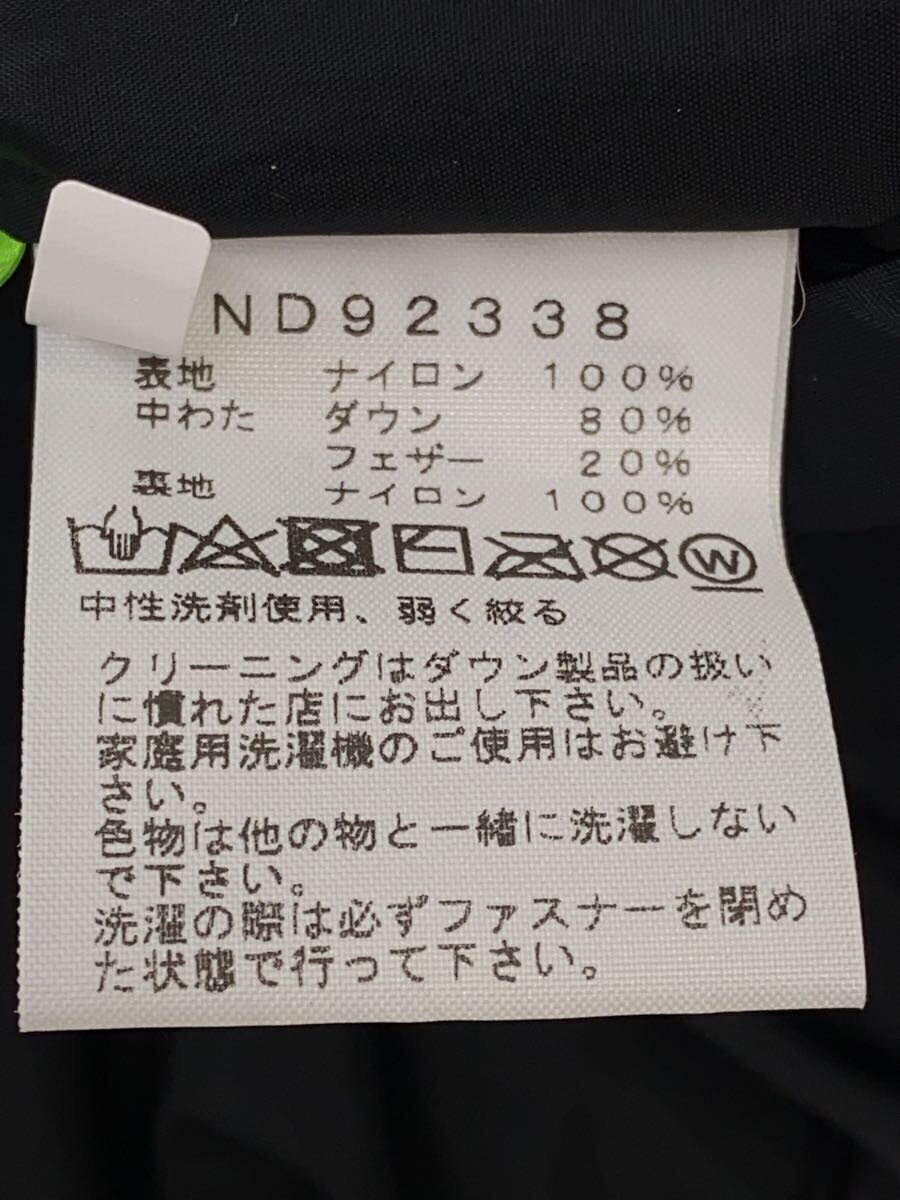 ND92338
表地 ナイロン 100%
中わた ダウン 80%
フェザー 20%
裏地 ナイロン 100%
W
中性洗剤使用、弱く絞る
クリーニングはダウン製品の扱い
に慣れた店にお出し下さい。
家庭用洗濯機のご使用はお避け下
さい。
色物は他の物と一緒に洗濯しない
で下さい。
洗濯の際は必ずファスナーを閉め
た状態で行って下さい。